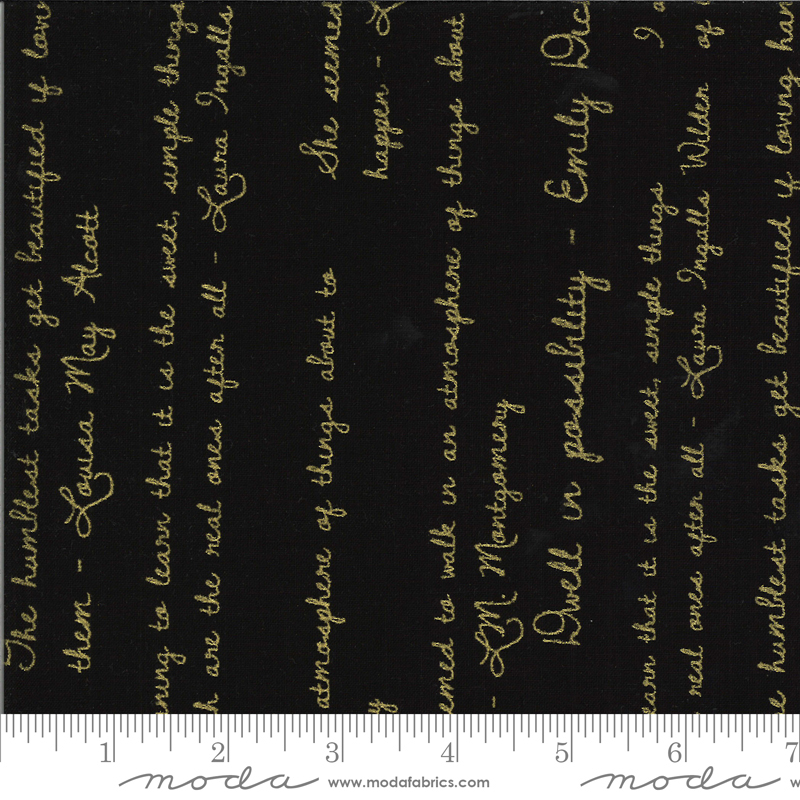 The humblest tasks get beautified if lov
them - Louisa May Alcott
ning to learn that it is the sweet, simple things
h are the real ones after all - Laura Ingalls
atmosphere of things about to
She seemed
happen - L
y
emed to walk in an atmosphere of things about
- L.M. Montgomery
Dwell in possibility - Emily Dic
earn that it is the sweet, simple things
I a
real ones after all - Laura Ingalls Wilder
of
e humblest tasks get beautified if loving han
1 2 3 4 5 6 7
moda www.modafabrics.com
moda w